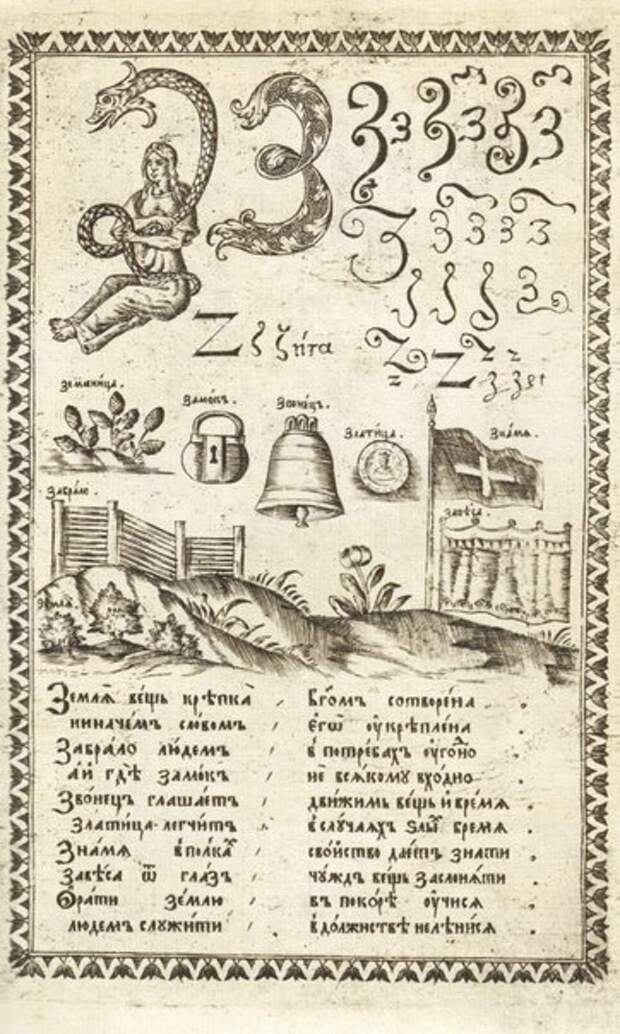 З З
Z ζ ζита
Земляница.
Замо́къ.
Звонецъ.
Златица.
Знамѧ.
Забрало.
Завѣса.
Землѧ.
Землѧ̀ вещь крѣпка , Бг҃омъ сотворе́на .
ниначе́мъ сло́вомъ , єгѡ̀ ѹкрѣпле́на .
Забра́ло лю́демъ , в потре́бахъ ѹго́дно .
а́и гдѣ̀ замо́къ , не всѧ́кому вхо́дно .
Звоне́цъ глаша́етъ , дви́жимь ве́щь и вре́мѧ .
Златица легчи́тъ , в слу́чаѧхъ ѕлы́ бремѧ .
Зна́мѧ в полка́х , сво́йство дае́тъ зна́ти .
Завѣ́са ѿ гла́зъ , чу́ждъ ве́щь заслонѧ́ти .
Ѻра́ти зе́млю , въ поко́рѣ ѹчи́сѧ .
лю́демъ служи́ти , в до́лжнствѣ нелѣни́сѧ .